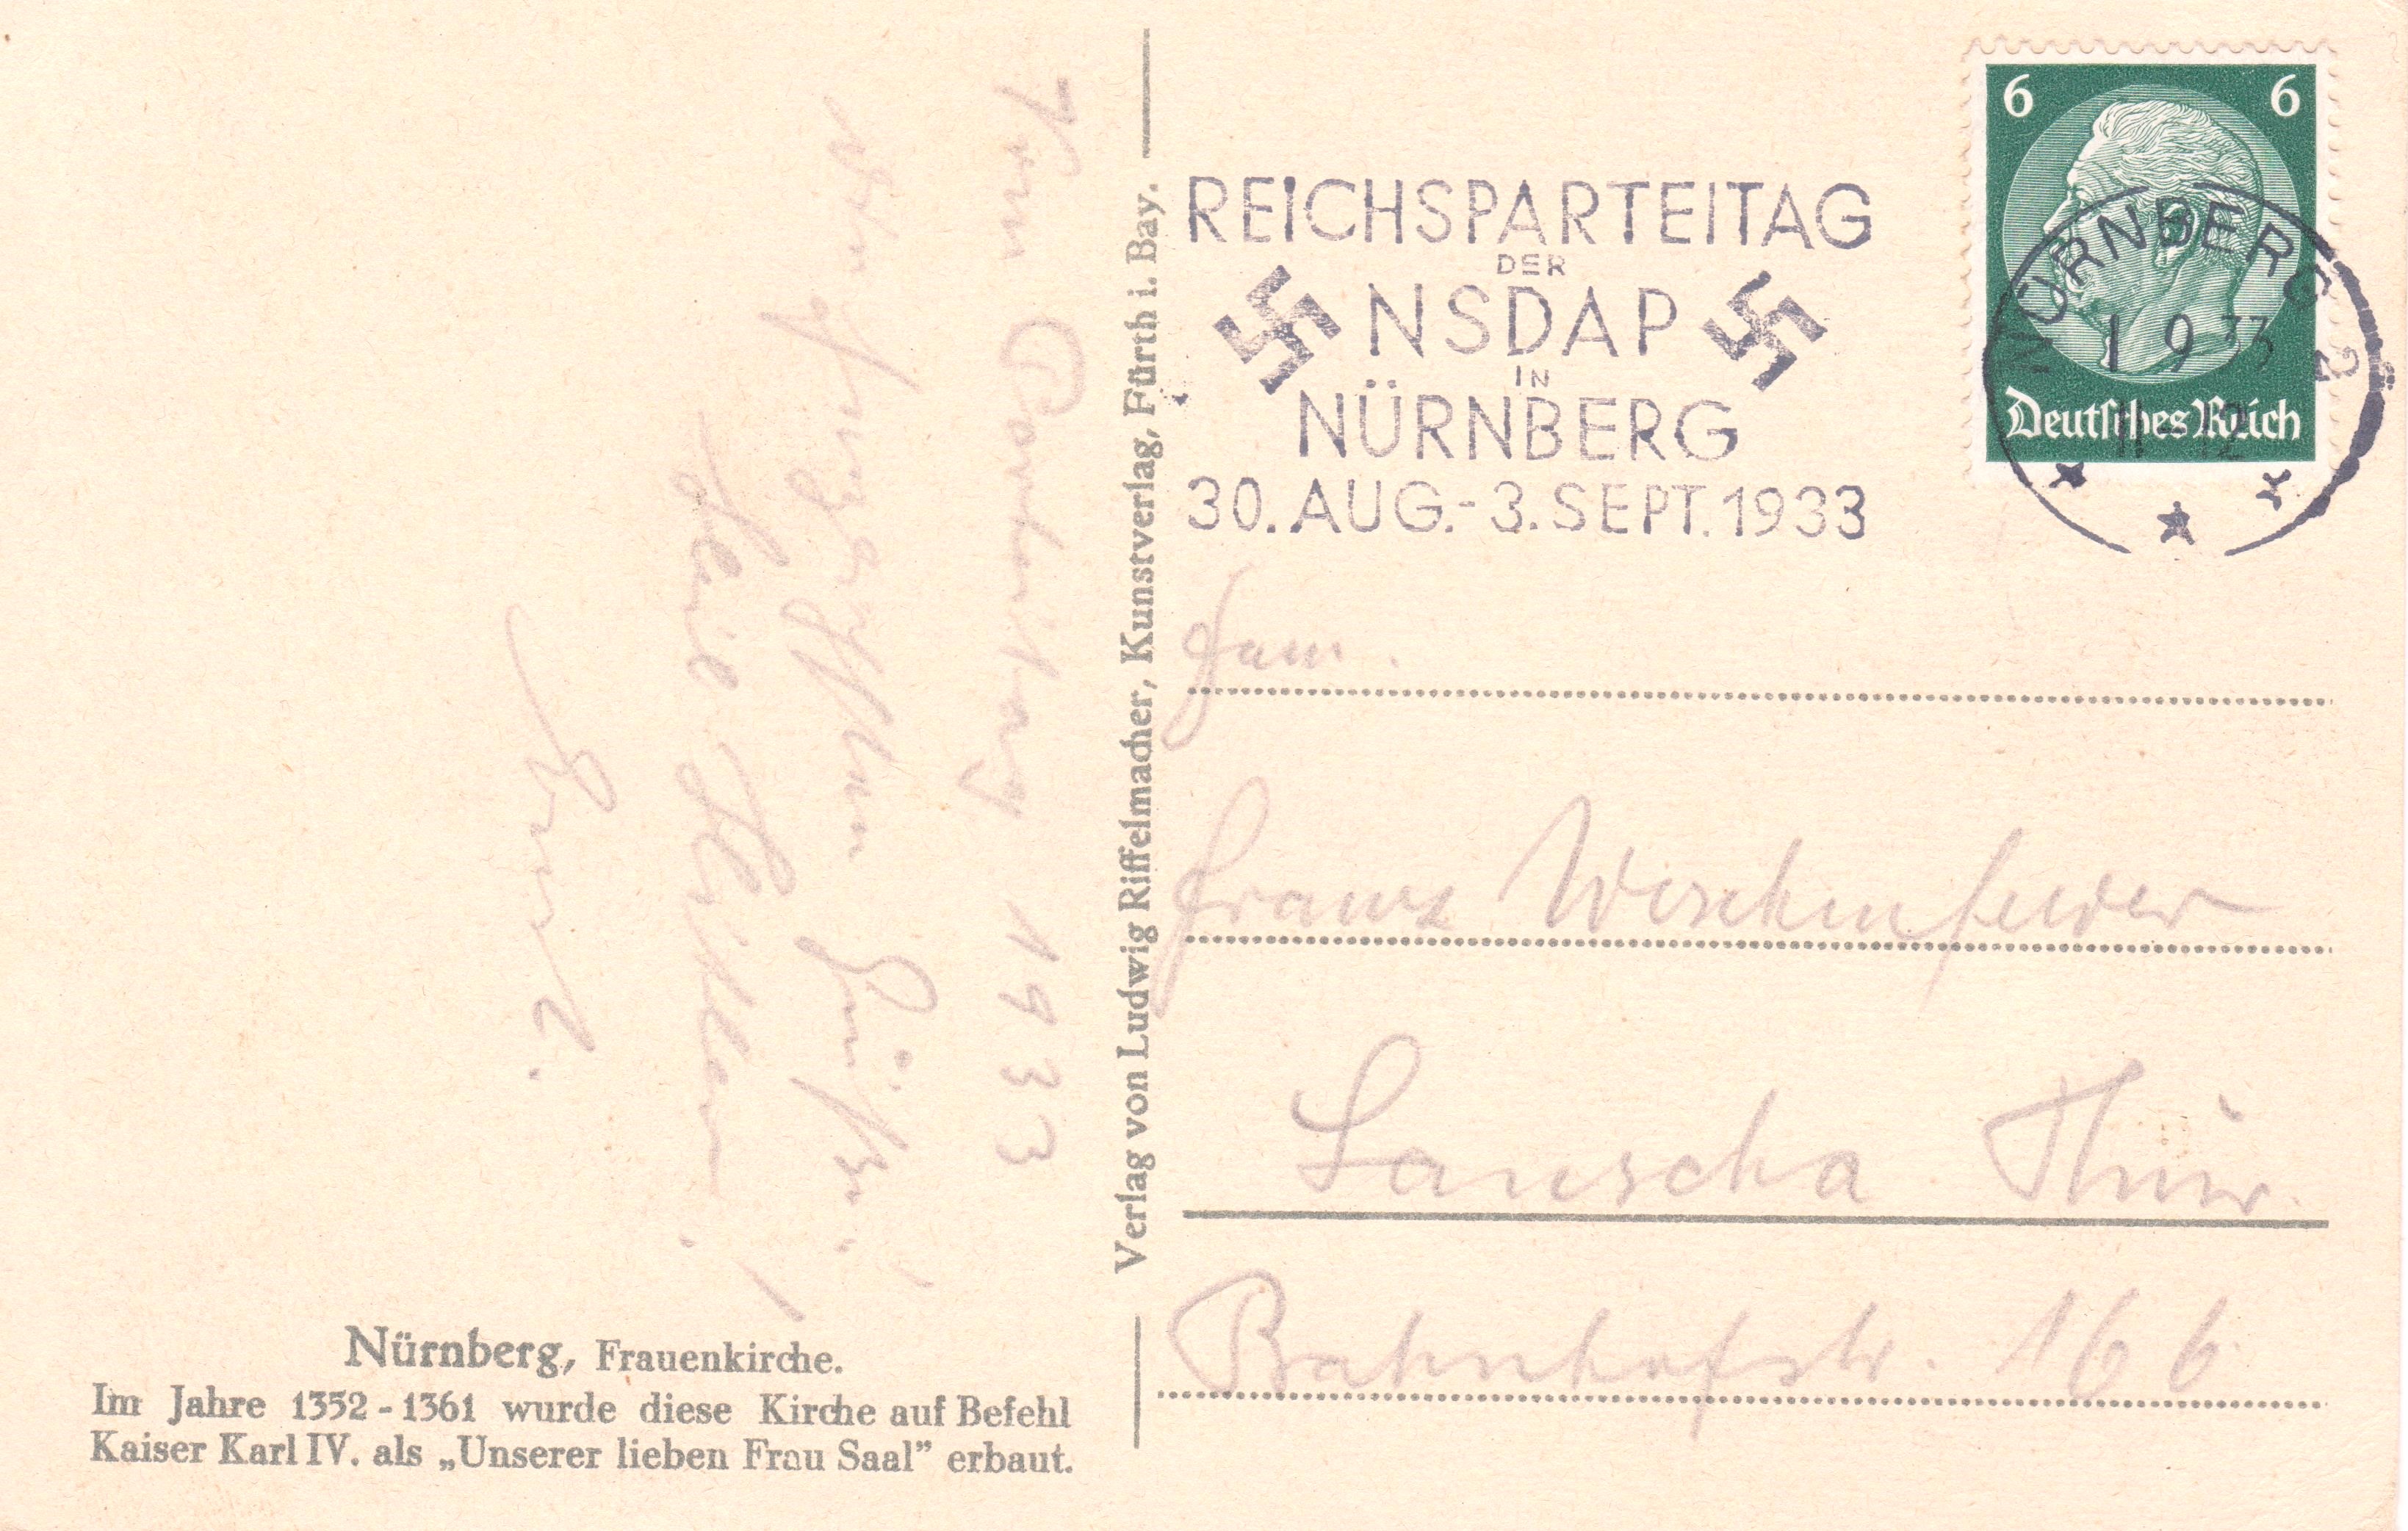 Vom Parteitag 1933
Grüße!
Heil Hitler!
Ernst.
Nürnberg, Frauenkirche.
Im Jahre 1352-1361 wurde diese Kirche auf Befehl
Kaiser Karl IV. als „Unserer lieben Frau Saal” erbaut.
Verlag von Ludwig Riffelmacher, Kunstverlag, Fürth i. Bay.
REICHSPARTEITAG
DER
NSDAP
IN
NÜRNBERG
30. AUG.-3. SEPT. 1933
6 6
Deutsches Reich
NÜRNBERG 2
1 9 33
11-12
Fam.
Franz
Lauscha Thür.
Bahnhofstr. 166